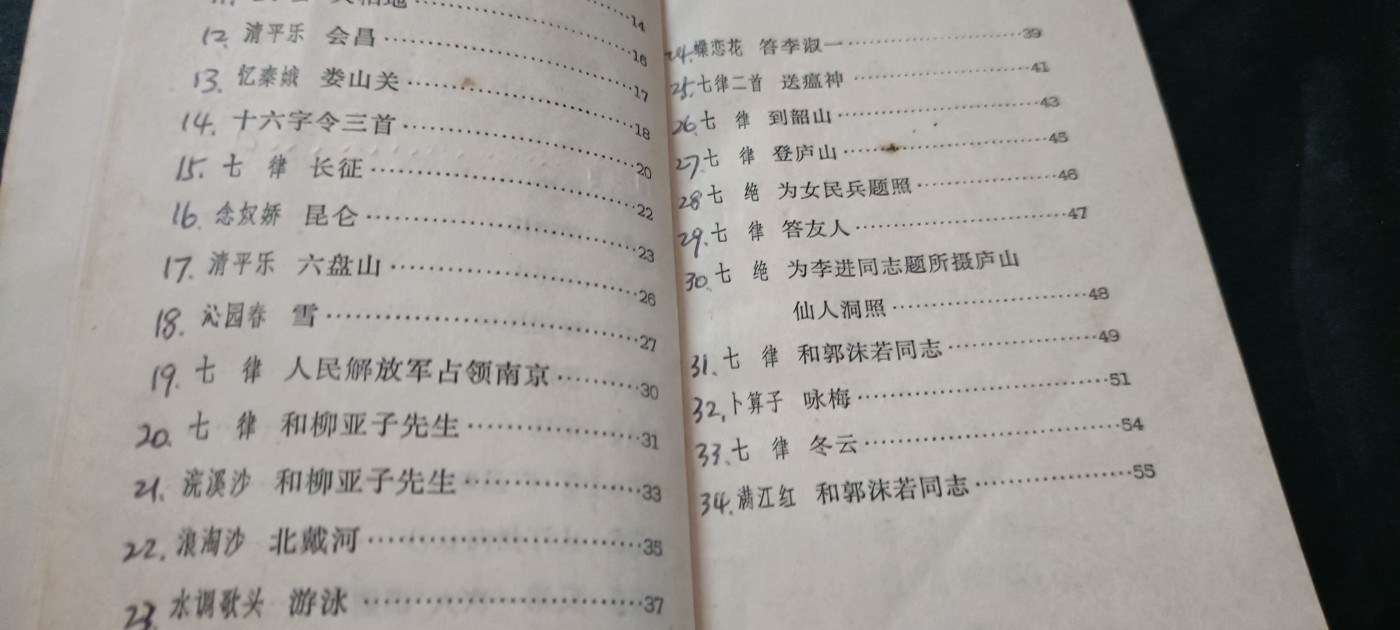 14
大柏地 16
12. 清平乐 会昌 17
13. 忆秦娥 娄山关 18
14. 十六字令三首 20
15. 七 律 长征 22
16. 念奴娇 昆仑 23
17. 清平乐 六盘山 26
18. 沁园春 雪 27
19. 七 律 人民解放军占领南京 30
20. 七 律 和柳亚子先生 31
21. 浣溪沙 和柳亚子先生 33
22. 浪淘沙 北戴河 35
23. 水调歌头 游泳 37
24. 蝶恋花 答李淑一 39
25. 七律二首 送瘟神 41
26. 七 律 到韶山 43
27. 七 律 登庐山 45
28 七 绝 为女民兵题照 46
29. 七 律 答友人 47
30. 七 绝 为李进同志题所摄庐山
仙人洞照 48
31. 七 律 和郭沫若同志 49
32. 卜算子 咏梅 51
33. 七 律 冬云 54
34. 满江红 和郭沫若同志 55